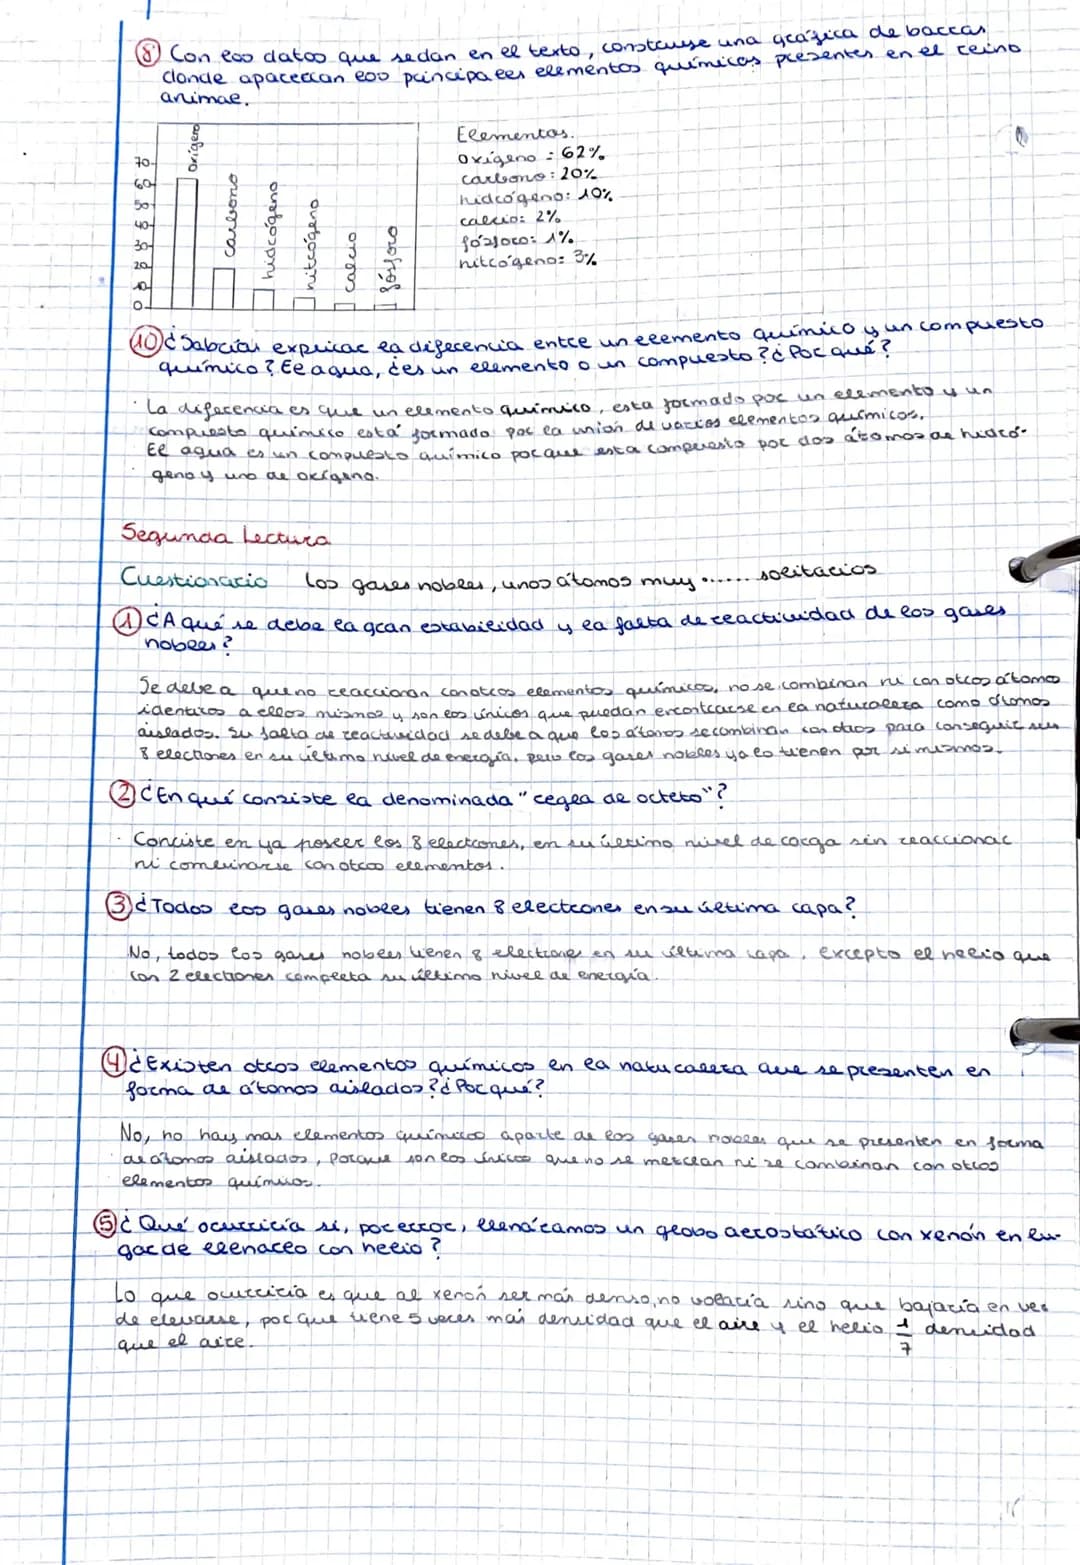 8 Con los datos que se dan en el texto, construye una gráfica de barras
donde aparezcan los principales elementos químicos presentes en el reino
animal.
70
60
50
40
30
20
10
0
oxígeno
carbono
hidrógeno
nitrógeno
calcio
fósforo
Elementos.
oxígeno : 62%
carbono: 20%
hidrógeno: 10%
calcio: 2%
fósforo: 1%
nitrógeno: 3%
10 ¿Sabrías explicar la diferencia entre un elemento químico y un compuesto
químico? El agua, ¿es un elemento o un compuesto? ¿Por qué?
La diferencia es que un elemento químico, esta formado por un elemento y un
compuesto químico está formado por la unión de varios elementos químicos.
El agua es un compuesto químico porque esta compuesto por dos átomos de hidró-
geno y uno de oxígeno.
Segunda Lectura
Cuestionario Los gases nobles, unos átomos muy ...... solitarios
1 ¿A qué se debe la gran estabilidad y la falta de reactividad de los gases
nobles?
Se debe a que no reaccionan con otros elementos químicos, no se combinan ni con otros átomos
identicos a ellos mismos y son los únicos que puedan encontrarse en la naturaleza como átomos
aislados. Su falta de reactividad se debe a que los átomos se combinan con otros para conseguir sus
8 electrones en su último nivel de energía, pero los gases nobles ya lo tienen por si mismos.
2 ¿En qué consiste la denominada "regla de octeto"?
Consiste en ya poseer los 8 electrones, en su último nivel de carga sin reaccionar
ni combinarse con otros elementos.
3 ¿Todos los gases nobles tienen 8 electrones en su última capa?
No, todos los gases nobles tienen 8 electrones en su última capa, excepto el helio que
con 2 electrones completa su último nivel de energía.
4 ¿Existen otros elementos químicos en la naturaleza que se presenten en
forma de átomos aislados? ¿Por qué?
No, no hay mas elementos químicos aparte de los gases nobles que se presenten en forma
de átomos aislados, porque son los únicos que no se mezclan ni se combinan con otros
elementos químicos.
5 ¿Qué ocurriría si, por error, llenáramos un globo aerostático con xenón en lu-
gar de llenarlo con helio?
Lo que ocurriría es que al xenón ser más denso, no volaría sino que bajaría en vez
de elevarse, porque tiene 5 veces más densidad que el aire y el helio 1/7 densidad
que el aire.